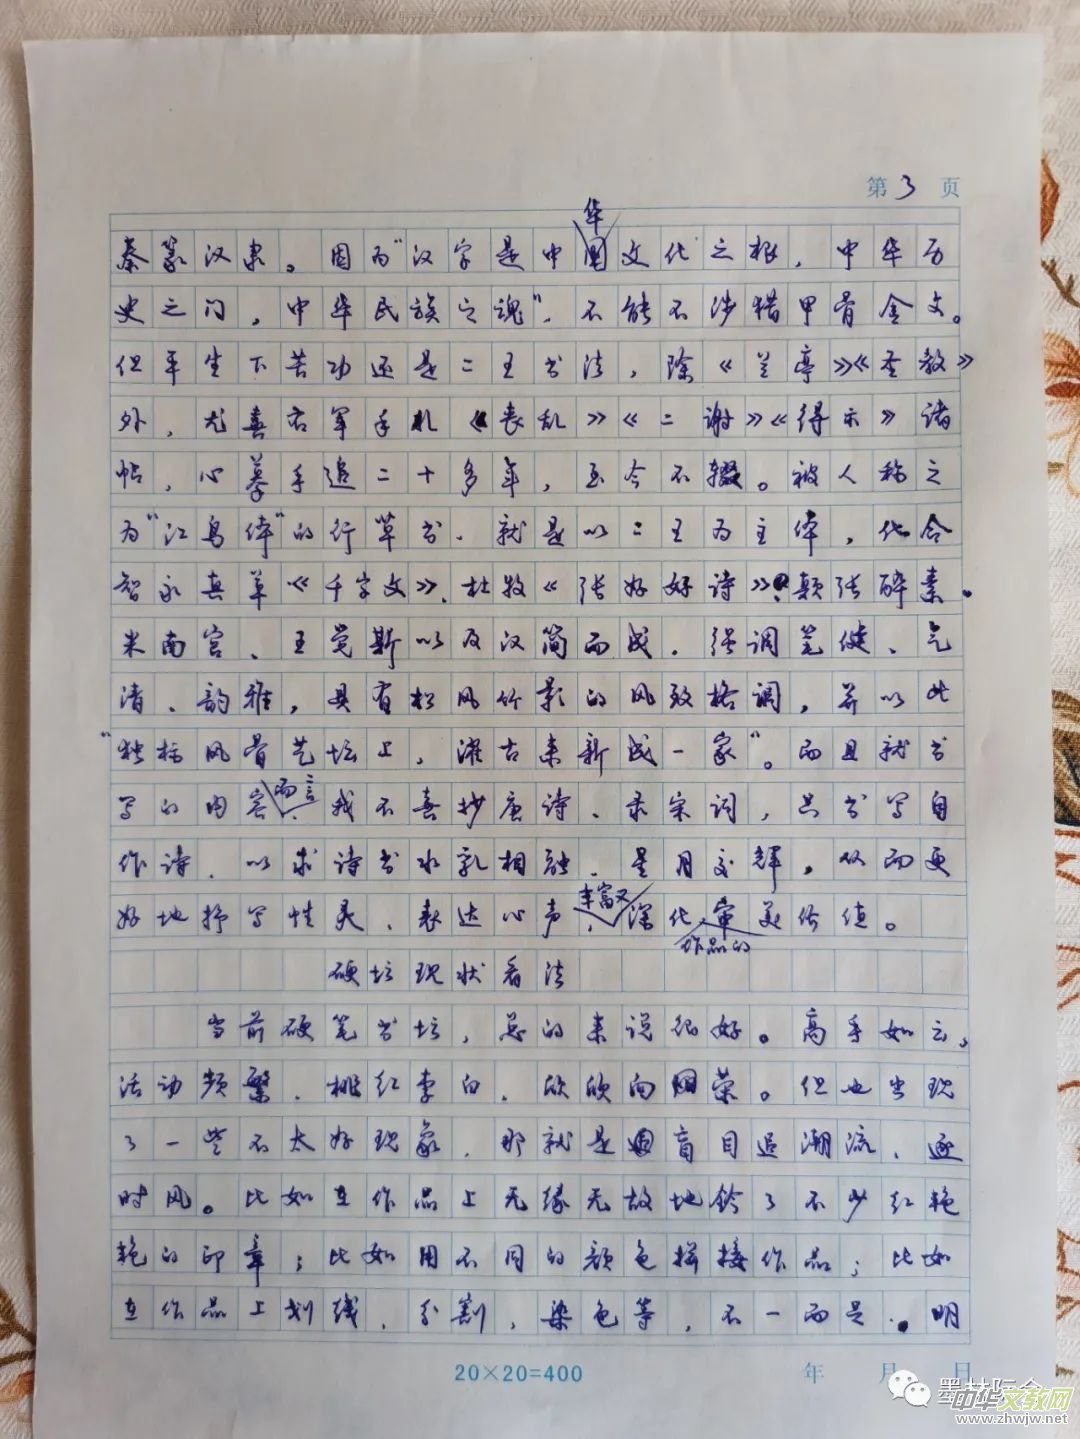 第3页
华
秦篆汉隶。因为“汉字是中国文化之根，中华历
史之门，中华民族之魂”，不能不涉猎甲骨金文。
但平生下苦功还是二王书法，除《兰亭》《圣教》
外，尤喜右军手札《丧乱》《二谢》《得示》诸
帖，心摹手追二十多年，至今不辍。被人称之
为“江鸟体”的行草书，就是以二王为主体，化合
智永真草《千字文》、杜牧《张好好诗》、颠张醉素、
米南宫、王觉斯以及汉简而成。强调笔健、气
清、韵雅，具有松风竹影的风致格调，并以此
“独标风骨艺坛上，濯古来新成一家”。而且就书
写的内容而言，我不喜抄唐诗、录宋词，只书写自
作诗，以求诗书水乳相融，星月交辉，从而更
好地抒写性灵、表达心声，丰富又深化作品的审美价值。
硬坛现状看法
当前硬笔书坛，总的来说很好。高手如云，
活动频繁，桃红李白，欣欣向荣。但也出现
了一些不太好现象，那就是盲目追潮流、逐
时风。比如在作品上无缘无故地钤了不少红艳
艳的印章；比如用不同的颜色拼接作品；比如
在作品上划线，分割，染色等，不一而足。明
20×20=400
年 月 日
墨林际会
中华文教网
www.zhwjw.net